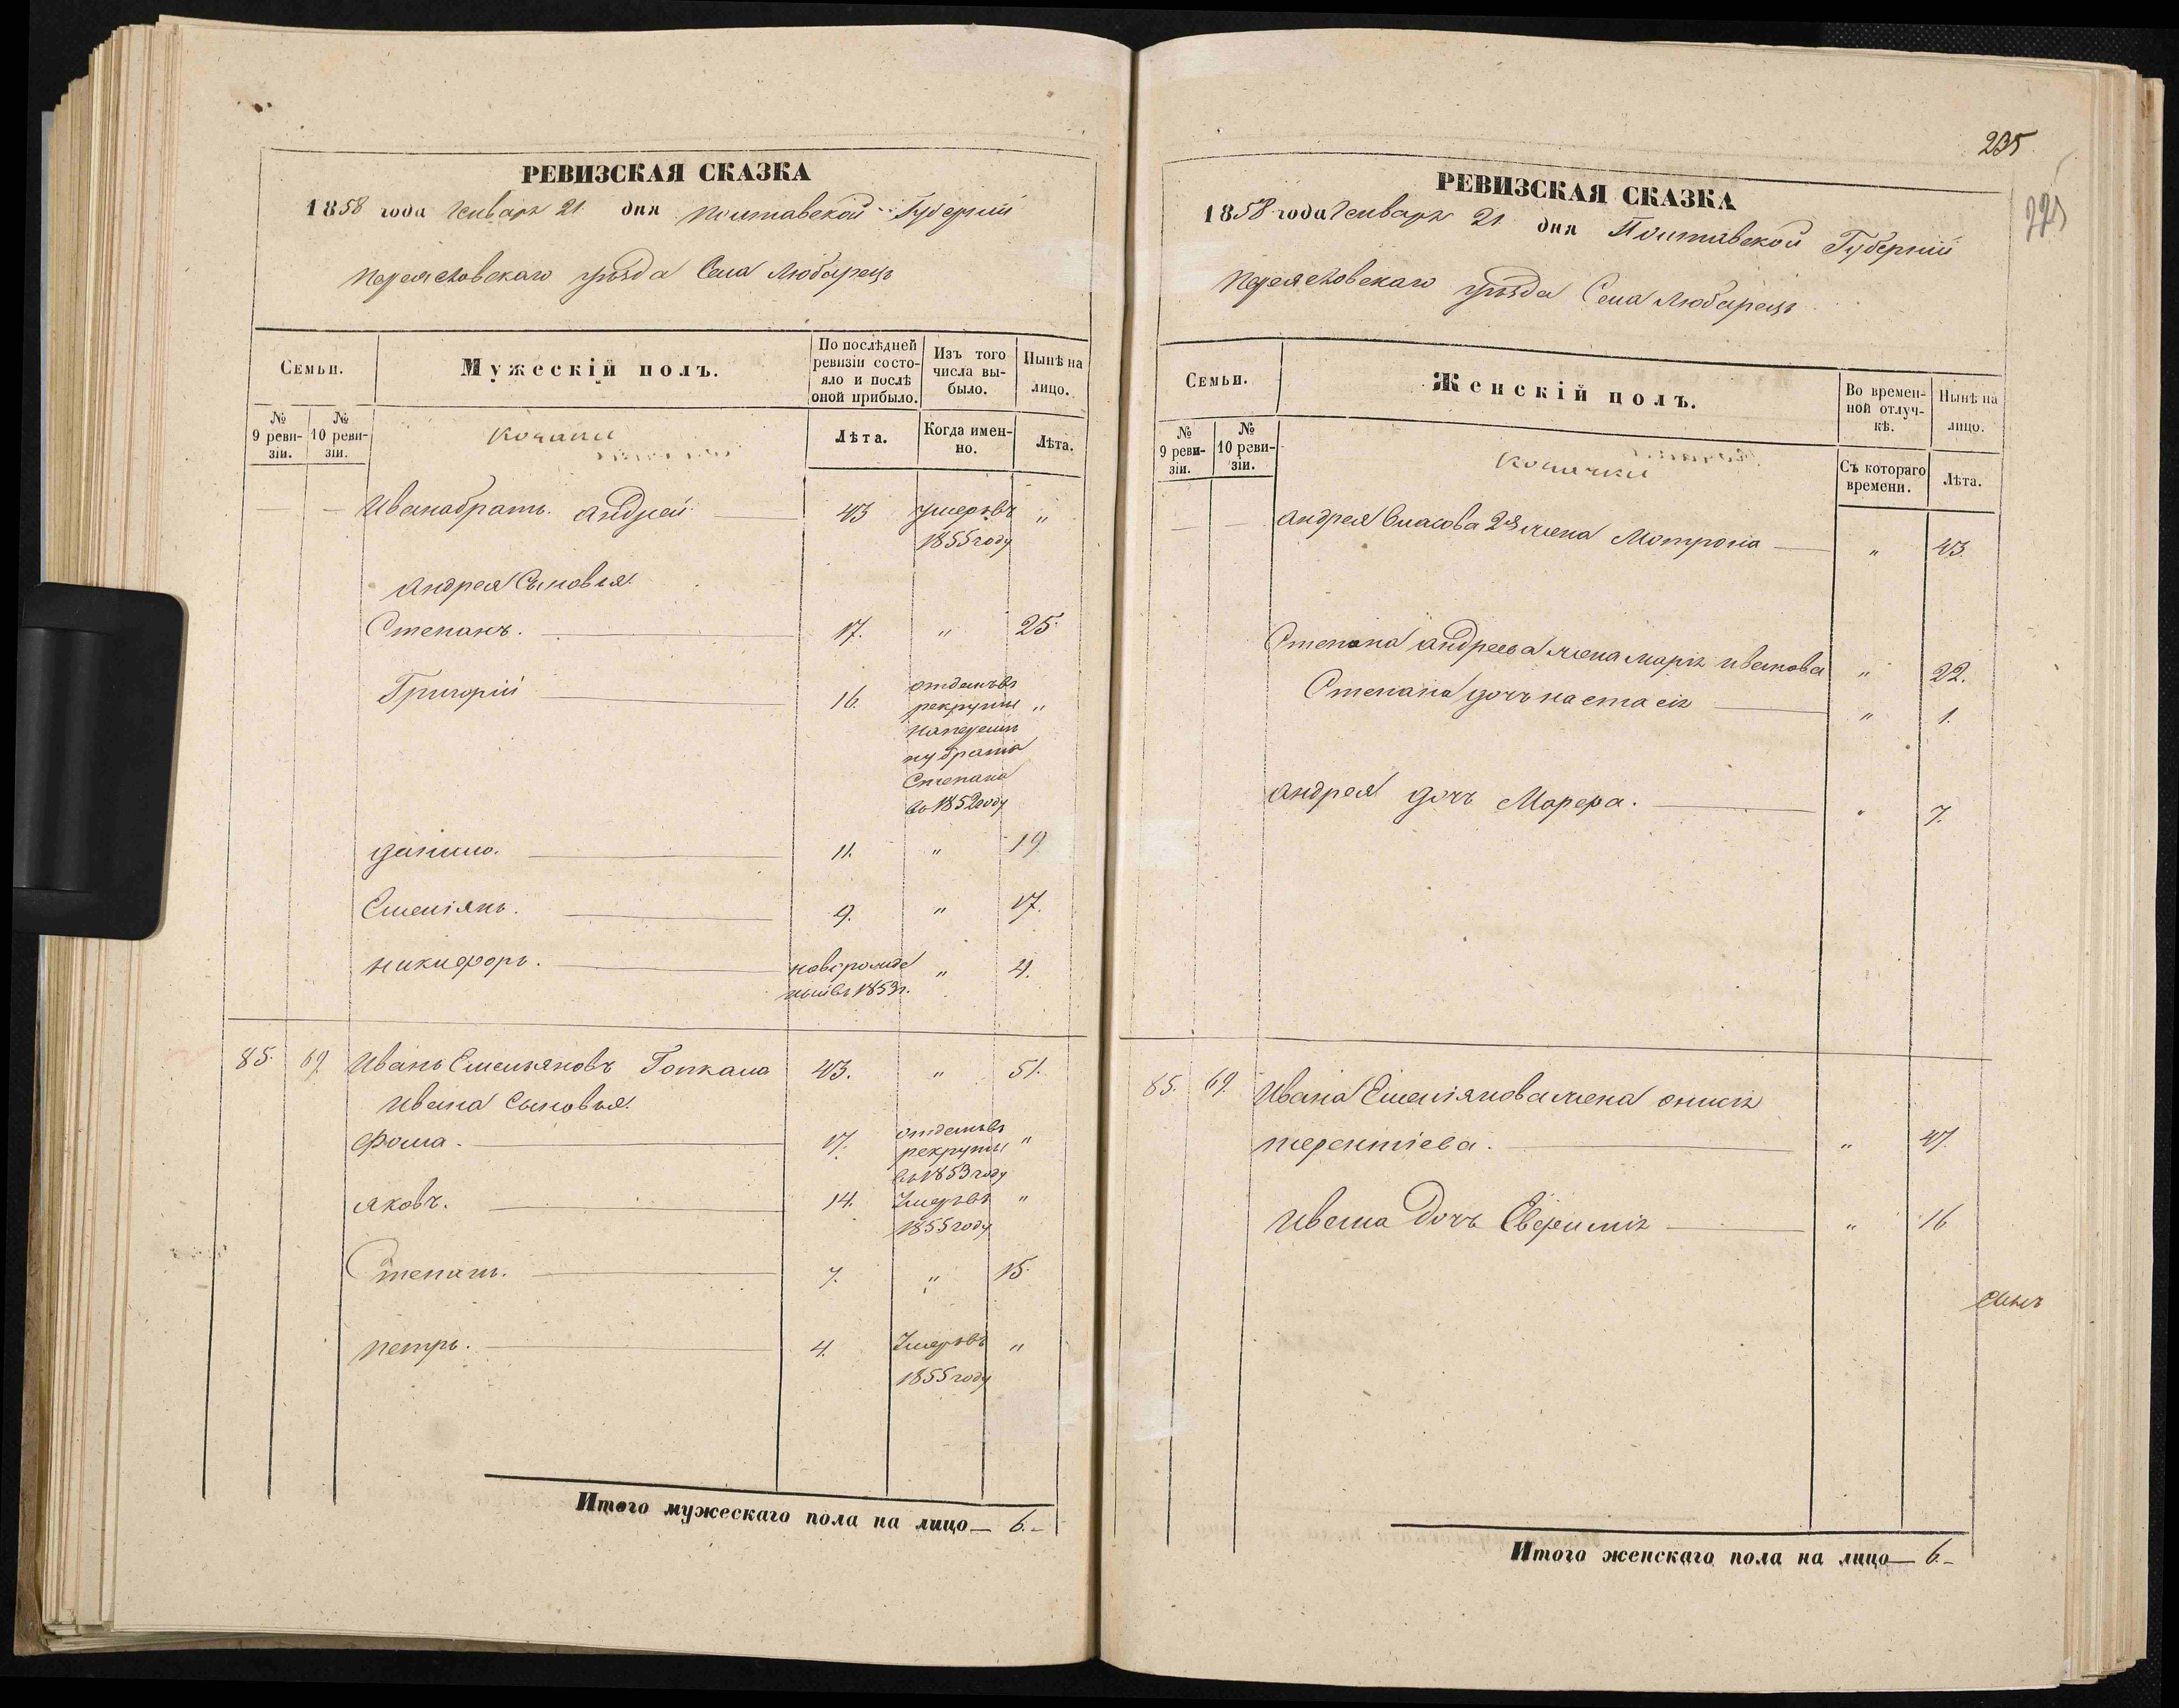 РЕВИЗСКАЯ СКАЗКА
1858 года Генваря 21 дня Полтавской Губерніи
Переясловскаго уѣзда Села Любарецъ
Семьи.
Мужескій полъ.
По послѣдней ревизіи состояло и послѣ оной прибыло.
Изъ того числа выбыло.
Нынѣ на лицо.
№ 9 ревизіи.
№ 10 ревизіи.
Лѣта.
Когда именно.
Лѣта.
— — Ивана братъ Андрей — 43 умеръ въ 1855 году „
Андрея Сыновья
Степанъ. — 17. „ 25.
Григорій — 16. отданъ въ рекруты „
въ 1852 году
Данило. — 11. „ 19
Емеліянъ. — 9. „ 17.
Никифоръ. — новорожденный въ 1853 г. „ 4.
85. 69. Иванъ Емельяновъ 43. „ 51.
Ивана Сыновья.
Фома. — 17. отданъ въ рекруты въ 1853 году „
Яковъ. — 14. Умеръ въ 1855 году „
Степанъ. — 7. „ 15.
Петръ. — 4. Умеръ въ 1855 году „
Итого мужескаго пола на лицо — 6. –
235
РЕВИЗСКАЯ СКАЗКА
1858 года Генваря 21 дня Полтавской Губерніи
Переясловскаго уѣзда Села Любарецъ
Семьи.
Женскій полъ.
Во временной отлучкѣ.
Нынѣ на лицо.
№ 9 ревизіи.
№ 10 ревизіи.
Съ котораго времени.
Лѣта.
— — Андрея Власова 2я жена Мотрона — „ 43.
Степана Андреева жена Марія Иванова „ 22.
Степана дочь Настасія — „ 1.
Андрея дочь — „ 7.
85. 69. Ивана Емеліянова жена
Терентіева. — „ 47.
Ивана Дочь Евфимія — „ 16
Итого женскаго пола на лицо — 6. –